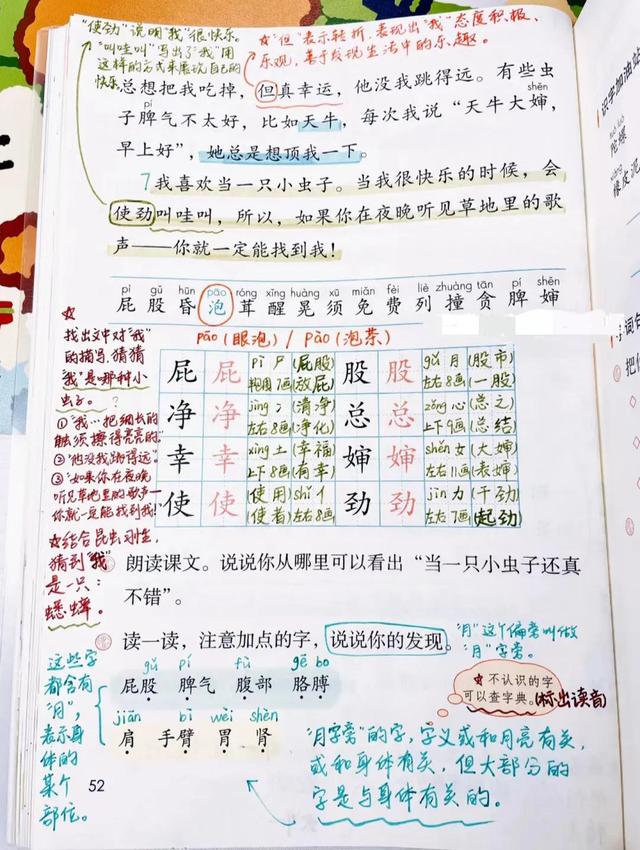 "使劲"说明"我"很快乐。
"叫哇叫"写出了"我"用
这样的方式来表现自己的
快乐
☆"但"表示转折,表现出"我"态度积极、
乐观,善于发现生活中的乐趣。
总想把我吃掉,但真幸运,他没我跳得远。有些虫
pí shěn
子脾气不太好,比如天牛,每次我说“天牛大婶,
早上好”,她总是想顶我一下。
7我喜欢当一只小虫子。当我很快乐的时候,会
使劲叫哇叫,所以,如果你在夜晚听见草地里的歌
声——你就一定能找到我!
pì gǔ hūn pāo róng xǐng huàng xū miǎn fèi liè zhuàng tān pí shěn
屁股昏泡茸醒晃须免费列撞贪脾婶
pāo(眼泡)/pào(泡茶)
☆
找出文中对"我"
的描写,猜猜
"我"是哪种小
虫子。?
①"我…把细长的
触须擦得亮亮的。"
②"他没我跳得远。"
③"如果你在夜晚
听见草地里的歌声—
你就一定能找到我!"
☆结合昆虫习性,
猜到"我"
是一只:
蟋蟀。
屁 屁 pì 尸 (屁股) 股 股 gǔ 月 (股市)
半包围 7画 (放屁) 左右8画 (一股)
净 净 jìng 冫 (清净) 总 总 zǒng 心 (总之)
左右8画 (净化) 上下9画 (总结)
幸 幸 xìng 土 (幸福) 婶 婶 shěn 女 (大婶)
上下8画 (有幸) 左右11画 (表婶)
使 使 (使用) shǐ 亻 劲 劲 jìn 力 (干劲)
(使者) 左右8画 左右7画 (起劲)
朗读课文。说说你从哪里可以看出“当一只小虫子还真
不错”。
读一读,注意加点的字,说说你的发现。
"月"这个偏旁叫做
"月"字旁。
gǔ pí fù gē bo
屁股 脾气 腹部 胳膊
jiān bì wèi shèn
肩 手臂 胃 肾
☆不认识的字
可以查字典。(标出读音)
这些字
都含有
"月",
表示身
体的
某个
部位。
"月字旁"的字,字义或和月亮有关,
或和身体有关,但大部分的
字是与身体有关的。
52
识字加油站
陀螺
橡皮泥
词句
把